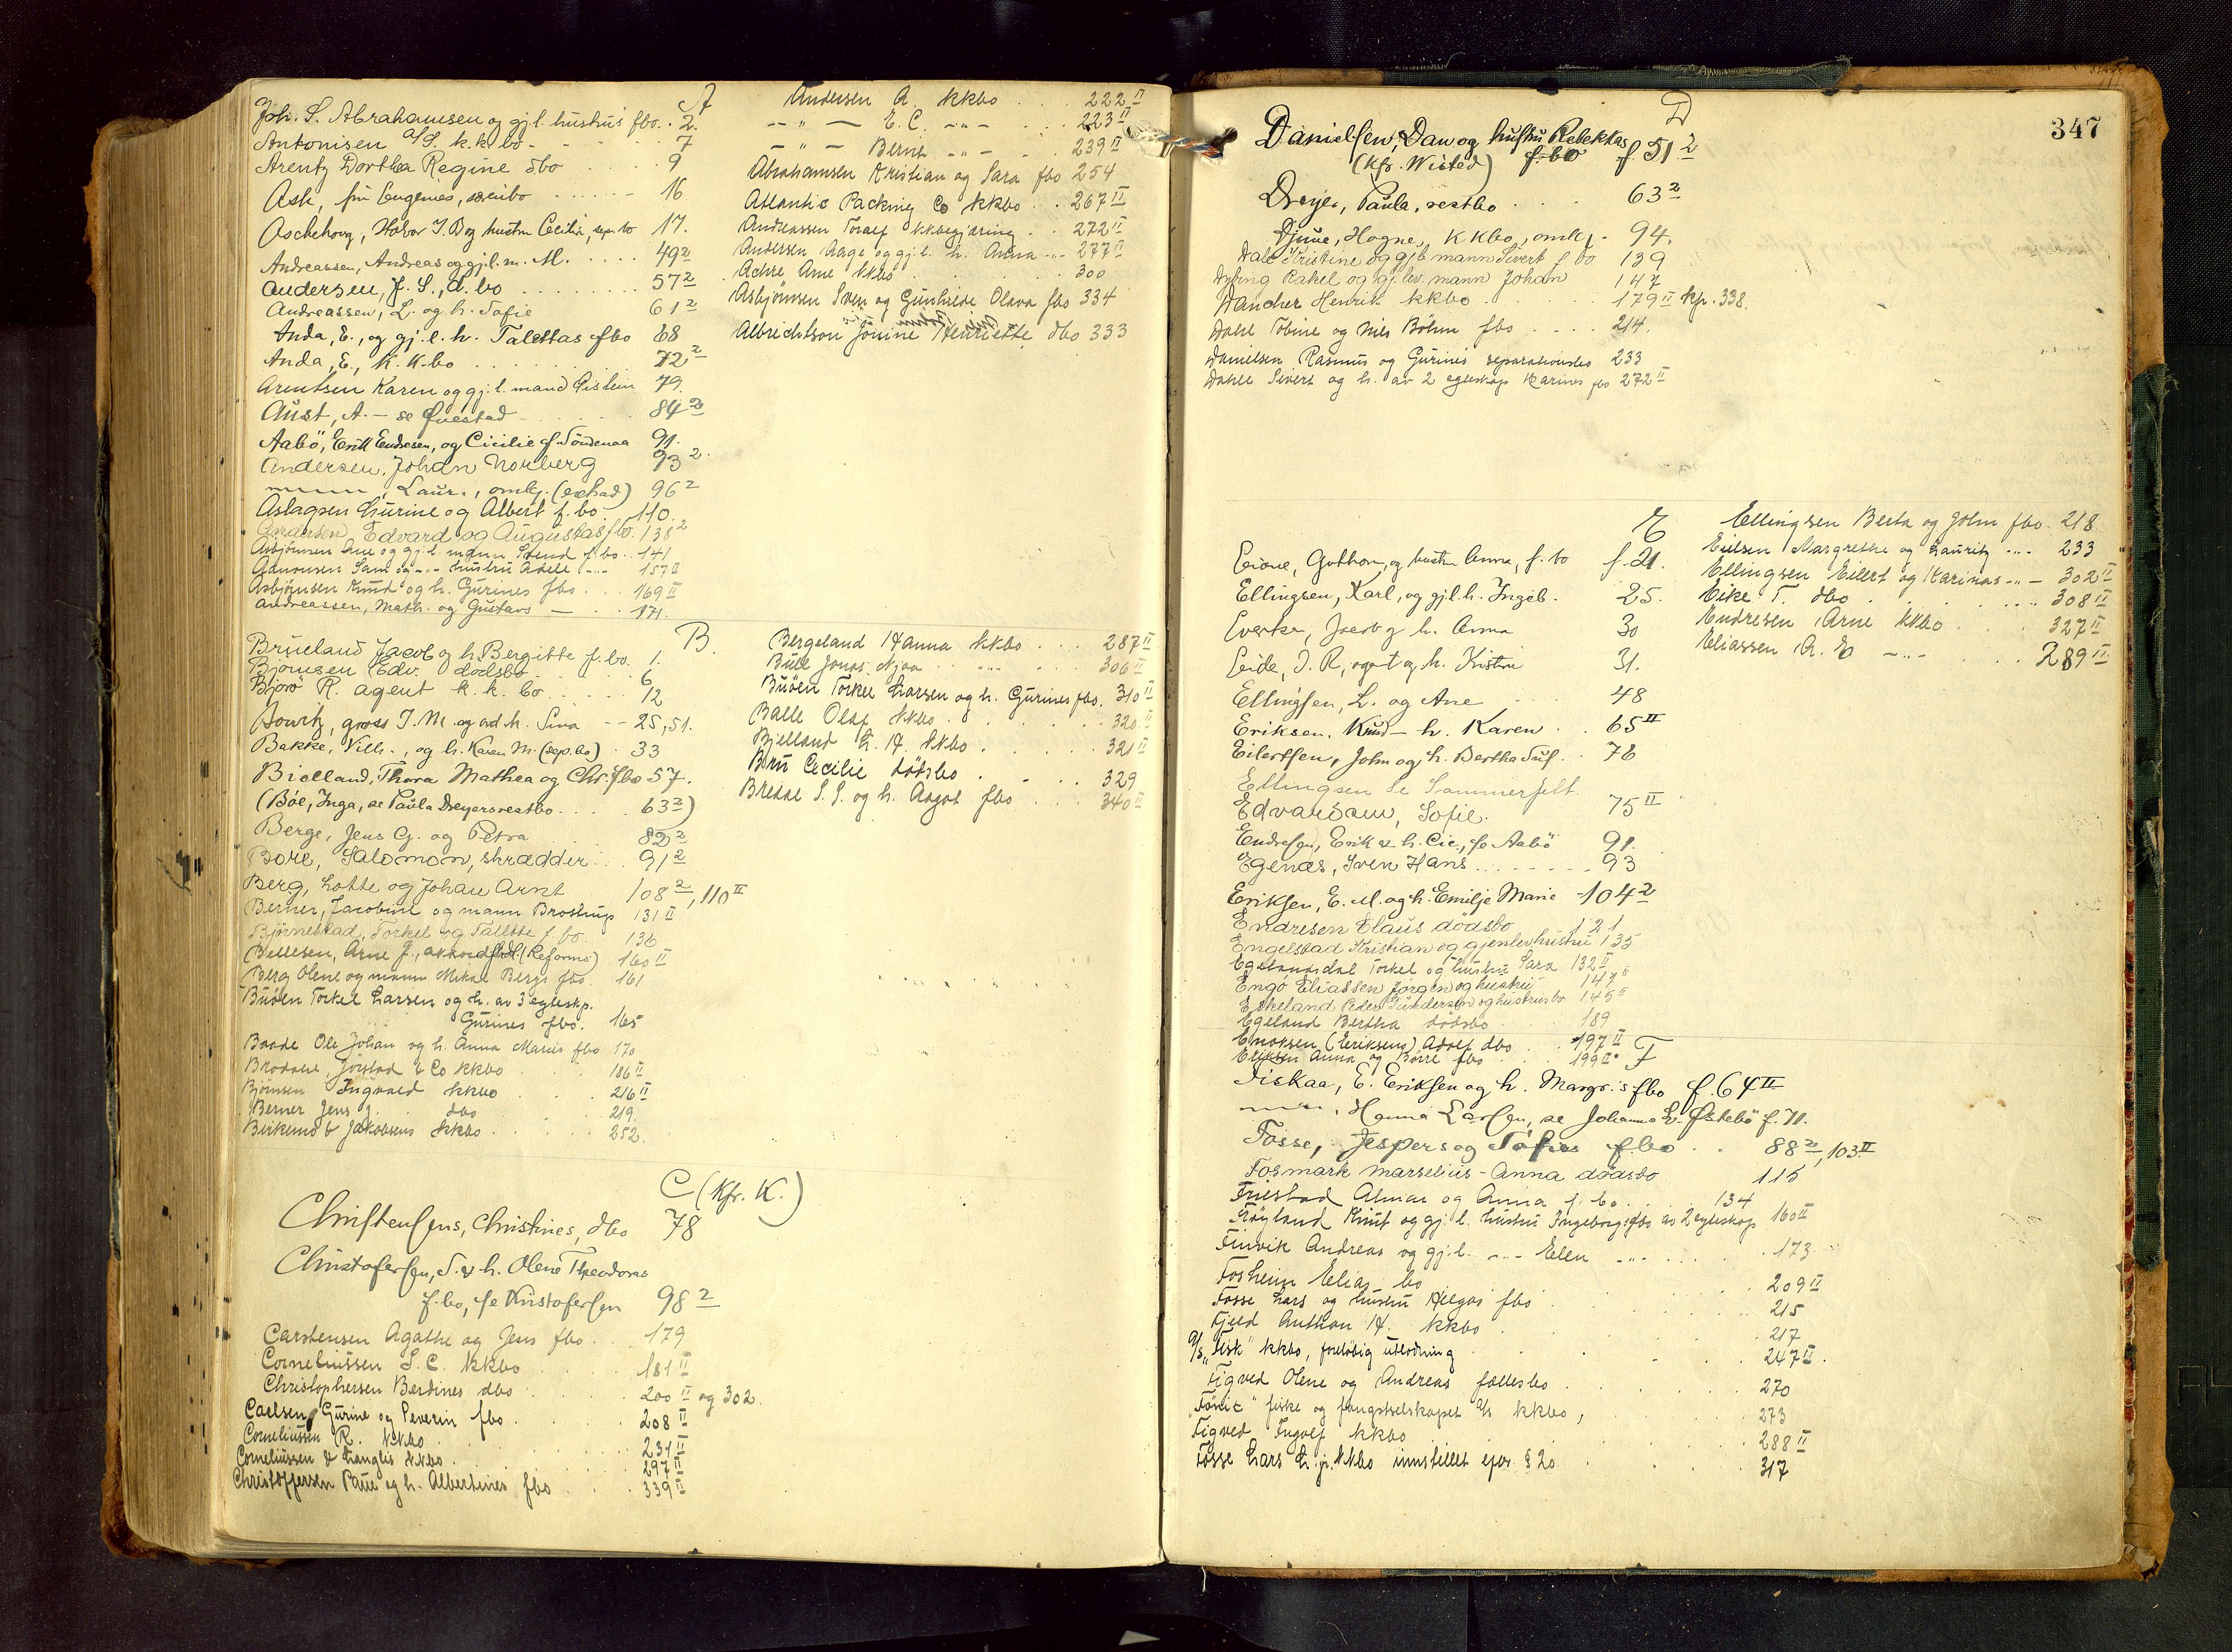 A
Joh. S. Abrahamsen og gjl. hustrus fbo. . 2.
Antonisen A/S. k.k.bo - - - - - 7
Arentz Dorthea Regine dbo . . . 9
Ask, frü Eugenies, særbo . . . . . 16
Aschehoug, Halvor J. B og hustru Cecilia, sep. bo 17.
Andreassen, Andreas og gjl. m. M. . . . . 49 2
Andersen, J. S., d. bo . . . . . . . . 57 2
Andreassen, L. og h. Sofie 61 2
Anda, E., og gj. l. h. Talettas fbo 68
Anda, E., K.K.bo . . . . . . . 72 2
Arentsen Karen og gj. l. mand Eistein 79.
Aust, A. - se Questad . . . . . 84 2
Aabö, Erik Endresen, og Cicilie af Söndenaa 91.
Andersen, Johan Norberg 93 2.
—"— , Laur., omkj. (exstrad) 96 2
Aslagsen Gurine og Albert f. bo 110.
Andersen Edvard og Augustas fbo. 138 2
Asbjörnsen Ane og gj. l. mann Svend f. bo . . 141
Admonsen Sam og -"- hustru Adele -"- 157 II
Asbjörnsen Knud og h. Gurines fbo . . . 169 II
Andreassen, Math. og Gustavs — . . 171.
Andersen A. kkbo . . . 222 II
-"- E. C. -"- . . . 223 II
-"- Bernt -"- . . 239 II
Abrahamsen Kristian og Sara fbo 254
Atlantic Packing Co kkbo . . 267 II
Andreassen Toralf kkbegjæring . . 272 II
Andersen Aage og gj. l. h. Anna -"- 277 II
Achre Arne kkbo . . . 300
Asbjörnsen Sven og Gunhilde Olava fbo 334
Albrichtson Jonine Henriette dbo 333
B.
Brüeland Jacob og h. Bergitte f. bo. 1.
Bjørnsen Edv. dödsbo . . . . 6
Bjorö R. agent k. k. bo . . . . . 12
Bowitz, gross J. M. og ad h. Sina - - 25, 51.
Bakke, Vilh., og h. Karen M. (sep. bo) . 33
Bielland, Thora Mathea og Chr. fbo 57.
(Böe, Inga, se Paula Dreyers restbo . . . . 63 2)
Berge, Jens G. og Petra . . 82 2
Bore, Salomon, skrædder . . . 91 2
Berg, Lotte og Johan Arnt 108 2, 110 II
Berner, Jacobine og mann Brostrup 131 II
Bjørnestad, Torkel og Tallette f. bo 136
Bellesen, Arne J., akkordforsl. (Reforms) 160 II
Berg Olene og mann Mikal Bergs fbo. 161
Buöen Torkel Larsen og h. av 3 egteskp.
Gurines fbo. 165
Baade Ole Johan og h. Anna Maries fbo 170
Brodahl, Jörstad & Co kkbo . . 186 II
Björnsen Ingvald kkbo . . . . 216 II
Berner Jens J. dbo . . . 219.
Birkemo & Jakobsens kkbo . . . . 252.
Bergeland Hanna kkbo . . . 287 II
Bull Jonas Njaa . . -"- . . . 306 II
Buöen Torkel Larsen og h. Gurines fbo. 310 II
Balle Olaf kkbo . . . . . 320 II
Bjelland L. H. kkbo . . . . 321 II
Bru Cecilie dödsbo . . . . 329
Bredal S. S. og h. Aagot fbo . . . 340 II
C (Kfr. K.)
Christensens, Christines, dbo 78
Christofersen, S. & h. Olene Theodora
f. bo, se Kristofersen 98 2
Carstensen Agathe og Jens fbo . . 179
Corneliussen S. C. kkbo . . . 181 II
Christophersen Berdines dbo . . . 200 II og 302.
Carlsen Gurine og Severin fbo . . . 208 II
Corneliussen R. kkbo . . . 231 II
Corneliussen & Langlis kkbo . . . . 297 II
Christoffersen Paul og h. Albertines fbo . . . 339 II
347
D
Danielsen, Dan og hustru Rebekkas f. 51 2
(kfr. Wisted) f. bo
Dreyer, Paula, restbo . . . 63 2
Djuve, Hogne, KKbo, omkj - 94.
Dale Kristine og gjb mann Sivert f bo 139
Dybing Rakel og gj. lev. mann Johan 147
Dancher Henrik kkbo . . . . 179 II kfr. 338.
Dahl Tobine og Nils Böhm fbo . . . . 214.
Danielsen Rasmus og Gurines separationsbo 233
Dahle Sivert og h. av 2 egteskap Karines fbo 272 II
E
Eione, Guthorm, og hustru Anna, f. bo f. 21.
Ellingsen, Karl, og gjl. h. Ingeb. 25.
Evertsen, Jacob og h. Anna 30
Eide, J. R, agent og h. Kristine 31.
Ellingsen, L. og Ane . 48
Eriksen, Knud - h. Karen . . 65 II
Eilertsen, John og h. Bertha Sus. . . 78
Ellingsen Se Sommerfelt.
Edvardsen, Sofie. 75 II
Endresen, Erik & h. Cic., se Aabö 91.
Egenæs, Sven Hans . . . . . . . 93
Eriksen, E. M. og h. Emilje Marie - 104 2
Endresen Claus dödsbo 121
Engelstad Kristian og gjenlev hustru 135
Egelandsdal Torkel og hustru Sara 132 II
Engö Eliassen Jörgen og hustru 147 II
Eskeland Peder Gundersen og hustrus bo 145 II
Egeland Bertha dödsbo . . . 189
Enoksen (Eriksens) Adolf dbo . . 197 II
Eriksen Anna og Börre fbo . . . 199 II.
Ellingsen Berta og John fbo. 218
Eielsen Margrethe og Lauritz -"- 233
Ellingsen Eilert og Karinas -"- 302 II
Eike T. dbo . . . . . . 308 II
Endresen Arne kkbo . . 327 II
Eliassen A. E. -"- . . . 289 II
F
Fiskaa, E. Eriksen og h. Margr.'s fbo f. 64 II
—"—, Hanna Larsen, se Johanna E. Østebö f. 71.
Fosse, Jespers og Sofies fbo . . 88 2, 103 II
Fosmark Marselius - Anna dödsbo 115
Friestad Almar og Anna f. bo . . . 134
Fröyland Knut og gj. l. hustru Ingeborgs fbo av 2 egteskap 160 II
Finvik Andreas og gj. l. -"- Ellen -"- . . . . 173
Fosheim Elias bo . . . 209 II
Fosse Lars og hustru Helgas fbo . . . 215
Fjeld Anthon H. kkbo . . . 217
A/S „Fisk" kkbo, foreløbig utlodning . . . 247 II.
Figved Olene og Andreas fællesbo . . . 270
„Fönix" fiske og fangstselskapet A/S kkbo, . . . 273
Figved Ingolf kkbo . . . 288 II
Fosse Lars L. jr. kkbo innstillet efter § 20 . . . 317